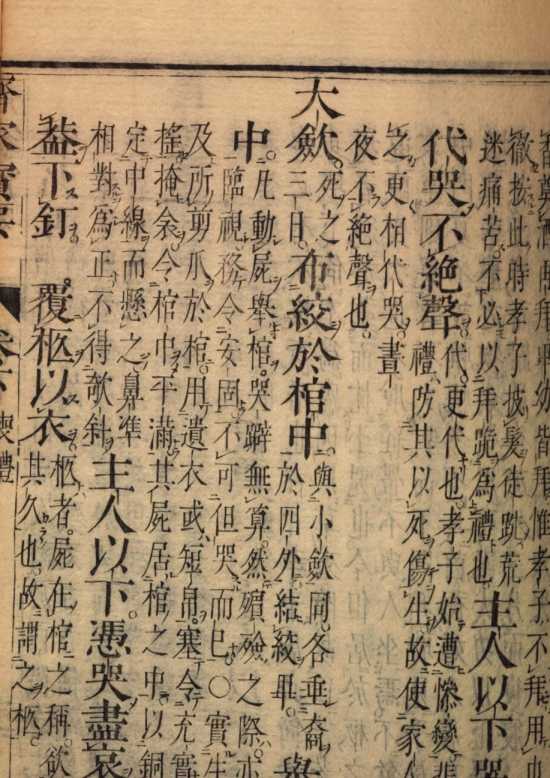 皆拜惟孝子不拜
徹按此時孝子披髮徒跣荒
迷痛苦不必以拜跪為禮也 主人以下哭
代哭不絕聲 代更代也孝子始遭慘變
禮防其以死傷生故使家人
之更相代哭晝
夜不絕聲也
大斂 死之
三日 布絞於棺中 與小斂同各垂裔
於四外結絞畢 舉
中 凡動屍舉棺哭擗無算然殯殮之際亦
臨視務令安固不可但哭而已○實生
及所剪爪於棺用遺衣或短帛塞令充實
搖掩衾令棺中平滿其屍居棺之中以銅
定中線而懸之鼻準
相對為正不得欹斜 主人以下憑哭盡哀
葢下釘 覆柩以衣 柩者屍在棺之稱欲
其久也故謂之柩
齊家寶要 卷 喪禮